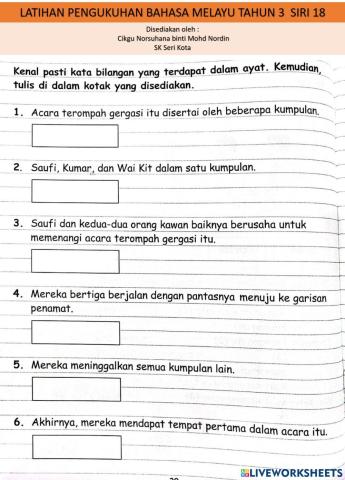 LATIHAN PENGUKUHAN BAHASA MELAYU TAHUN 3 SIRI 18
Disediakan oleh :
Cikgu Norsuhana binti Mohd Nordin
SK Seri Kota
Kenal pasti kata bilangan yang terdapat dalam ayat. Kemudian,
tulis di dalam kotak yang disediakan.
1. Acara terompah gergasi itu disertai oleh beberapa kumpulan.
2. Saufi, Kumar, dan Wai Kit dalam satu kumpulan.
3. Saufi dan kedua-dua orang kawan baiknya berusaha untuk
memenangi acara terompah gergasi itu.
4. Mereka bertiga berjalan dengan pantasnya menuju ke garisan
penamat.
5. Mereka meninggalkan semua kumpulan lain.
6. Akhirnya, mereka mendapat tempat pertama dalam acara itu.
LIVEWORKSHEETS